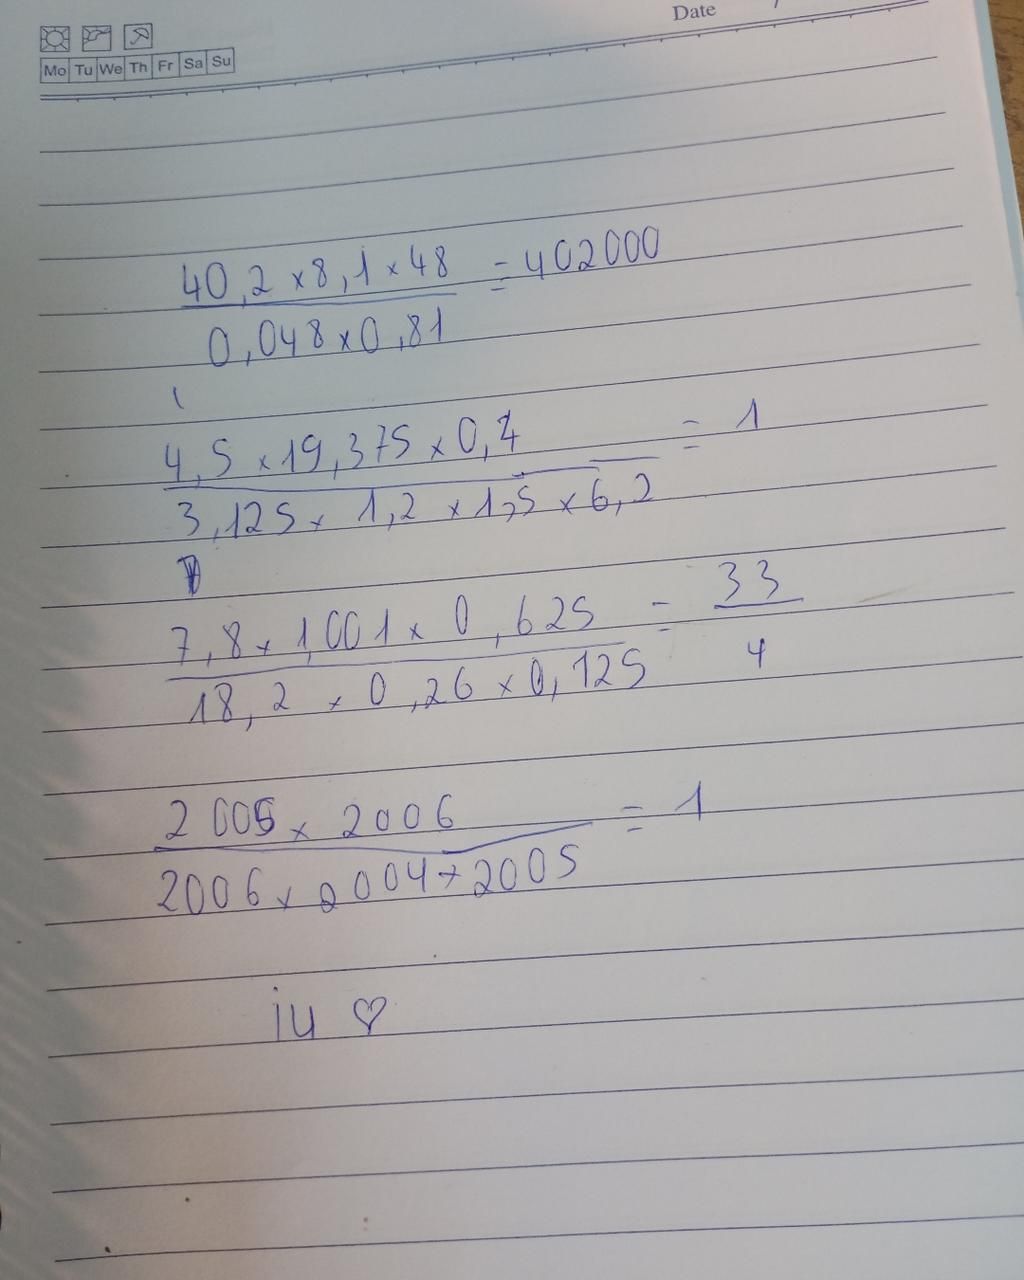 Date
Mo Tu We Th Fr Sa Su
40,2 × 8,1 × 48 = 402000
0,048 × 0,81
4,5 × 19,375 × 0,4 = 1
3,125 × 1,2 × 1,5 × 6,2
7,8 × 1,001 × 0,625 = 33
18,2 × 0,26 × 0,125 4
2005 × 2006 = 1
2006 × 2004 + 2005
iu ♡